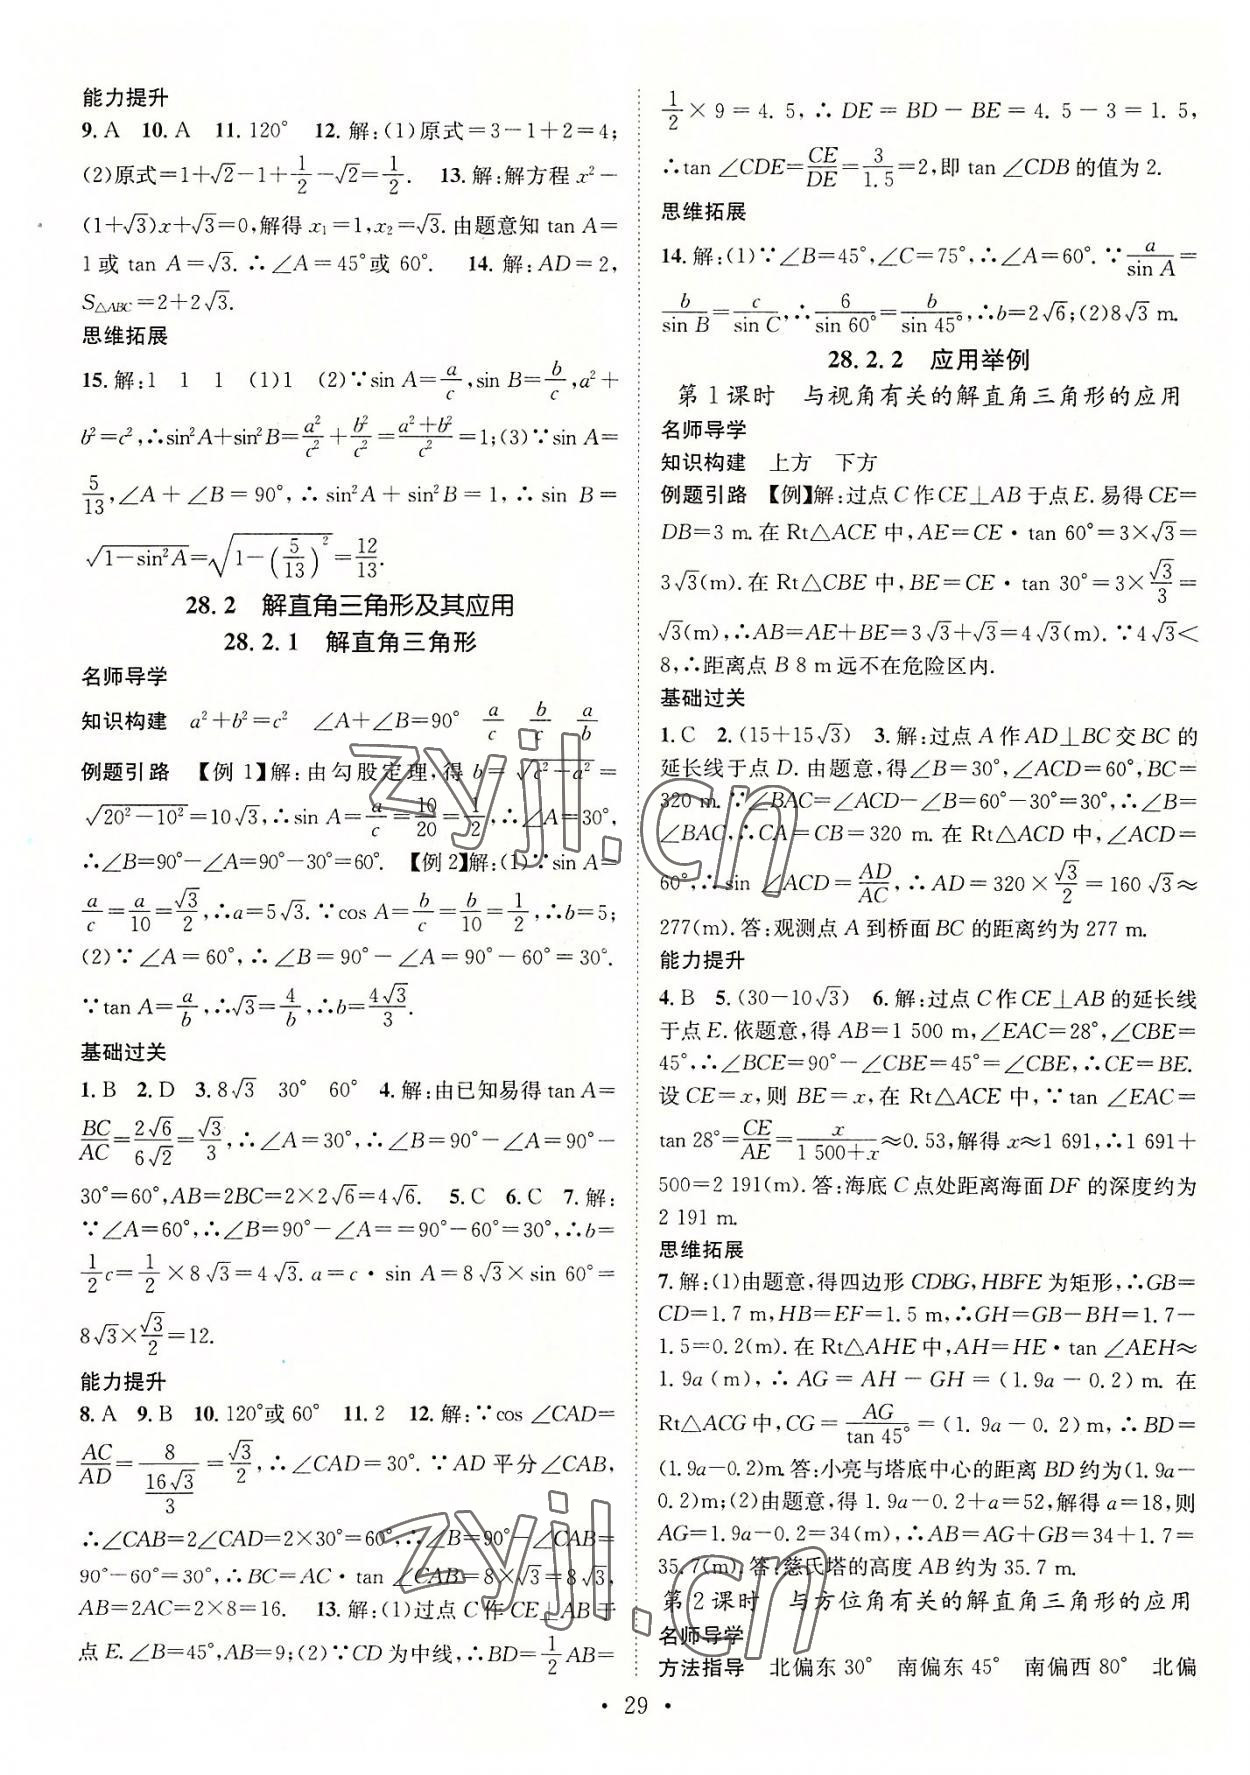 能力提升
9. A 10. A 11. 120° 12. 解:(1)原式=3-1+2=4;
(2)原式=1+√2-1+1/2-√2=1/2. 13. 解:解方程 x²-
(1+√3)x+√3=0,解得 x₁=1,x₂=√3. 由题意知 tan A=
1或 tan A=√3. ∴∠A=45°或 60°. 14. 解:AD=2,
S△ABC=2+2√3.
思维拓展
15. 解:1 1 1 (1)1 (2)∵sin A=a/c,sin B=b/c,a²+
b²=c²,∴sin²A+sin²B=a²/c²+b²/c²=(a²+b²)/c²=1;(3)∵sin A=
5/13,∠A+∠B=90°,∴sin²A+sin²B=1,∴sin B=
√(1-sin²A)=√(1-(5/13)²)=12/13.
28.2 解直角三角形及其应用
28.2.1 解直角三角形
名师导学
知识构建 a²+b²=c² ∠A+∠B=90° a/c b/c a/b
例题引路 【例 1】解:由勾股定理,得 b=√(c²-a²)=
√(20²-10²)=10√3,∴sin A=a/c=10/20=1/2,∴∠A=30°,
∴∠B=90°-∠A=90°-30°=60°. 【例 2】解:(1)∵sin A=
a/c=a/10=√3/2,∴a=5√3. ∵cos A=b/c=b/10=1/2,∴b=5;
(2)∵∠A=60°,∴∠B=90°-∠A=90°-60°=30°.
∵tan A=a/b,∴√3=4/b,∴b=4√3/3.
基础过关
1. B 2. D 3. 8√3 30° 60° 4. 解:由已知易得 tan A=
BC/AC=2√6/6√2=√3/3,∴∠A=30°,∴∠B=90°-∠A=90°-
30°=60°,AB=2BC=2×2√6=4√6. 5. C 6. C 7. 解:
∵∠A=60°,∴∠B=90°-∠A=90°-60°=30°,∴b=
1/2c=1/2×8√3=4√3. a=c·sin A=8√3×sin 60°=
8√3×√3/2=12.
能力提升
8. A 9. B 10. 120°或 60° 11. 2 12. 解:∵cos∠CAD=
AC/AD=8/(16√3/3)=√3/2,∴∠CAD=30°. ∵AD 平分∠CAB,
∴∠CAB=2∠CAD=2×30°=60°,∴∠B=90°-∠CAB=
90°-60°=30°,∴BC=AC·tan∠CAB=8×√3=8√3,
AB=2AC=2×8=16. 13. 解:(1)过点 C 作 CE⊥AB 于
点 E. ∠B=45°,AB=9;(2)∵CD 为中线,∴BD=1/2AB=
1/2×9=4.5,∴DE=BD-BE=4.5-3=1.5,
∴tan∠CDE=CE/DE=3/1.5=2,即 tan∠CDB 的值为 2.
思维拓展
14. 解:(1)∵∠B=45°,∠C=75°,∴∠A=60°. ∵a/sin A=
b/sin B=c/sin C,∴6/sin 60°=b/sin 45°,∴b=2√6;(2)8√3 m.
28.2.2 应用举例
第 1 课时 与视角有关的解直角三角形的应用
名师导学
知识构建 上方 下方
例题引路 【例】解:过点 C 作 CE⊥AB 于点 E. 易得 CE=
DB=3 m. 在 Rt△ACE 中,AE=CE·tan 60°=3×√3=
3√3(m). 在 Rt△CBE 中,BE=CE·tan 30°=3×√3/3=
√3(m),∴AB=AE+BE=3√3+√3=4√3(m). ∵4√3<
8,∴距离点 B 8 m 远不在危险区内.
基础过关
1. C 2. (15+15√3) 3. 解:过点 A 作 AD⊥BC 交 BC 的
延长线于点 D. 由题意,得∠B=30°,∠ACD=60°,BC=
320 m. ∵∠BAC=∠ACD-∠B=60°-30°=30°,∴∠B=
∠BAC,∴CA=CB=320 m. 在 Rt△ACD 中,∠ACD=
60°,∴sin∠ACD=AD/AC,∴AD=320×√3/2=160√3≈
277(m). 答:观测点 A 到桥面 BC 的距离约为 277 m.
能力提升
4. B 5. (30-10√3) 6. 解:过点 C 作 CE⊥AB 的延长线
于点 E. 依题意,得 AB=1 500 m,∠EAC=28°,∠CBE=
45°,∴∠BCE=90°-∠CBE=45°=∠CBE,∴CE=BE.
设 CE=x,则 BE=x,在 Rt△ACE 中,∵tan∠EAC=
tan 28°=CE/AE=x/(1 500+x)≈0.53,解得 x≈1 691,∴1 691+
500=2 191(m). 答:海底 C 点处距离海面 DF 的深度约为
2 191 m.
思维拓展
7. 解:(1)由题意,得四边形 CDBG,HBFE 为矩形,∴GB=
CD=1.7 m,HB=EF=1.5 m,∴GH=GB-BH=1.7-
1.5=0.2(m). 在 Rt△AHE 中,AH=HE·tan∠AEH≈
1.9a(m),∴AG=AH-GH=(1.9a-0.2)m. 在
Rt△ACG 中,CG=AG/tan 45°=(1.9a-0.2)m,∴BD=
(1.9a-0.2)m. 答:小亮与塔底中心的距离 BD 约为(1.9a-
0.2)m;(2)由题意,得 1.9a-0.2+a=52,解得 a=18,则
AG=1.9a-0.2=34(m),∴AB=AG+GB=34+1.7=
35.7(m). 答:慈氏塔的高度 AB 约为 35.7 m.
第 2 课时 与方位角有关的解直角三角形的应用
名师导学
方法指导 北偏东 30° 南偏东 45° 南偏西 80° 北偏
· 29 ·
zyjl.cn
zyjl.cn